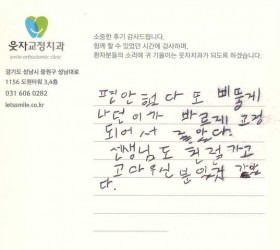 웃자교정치과
smile orthodontic clinic
경기도 성남시 중원구 성남대로
1156 도원타워 3,4층
031 606 0282
letsmile.co.kr
소중한 후기 감사드립니다.
함께 할 수 있었던 시간에 감사하며,
환자분들의 소리에 귀 기울이는 웃자치과가 되도록 하겠습니다.
편안했다 또 삐뚤게
나던 이가 바르게 교정
되어서 좋았다.
선생님도 친절하고
고마우신 분인것 같았
다.